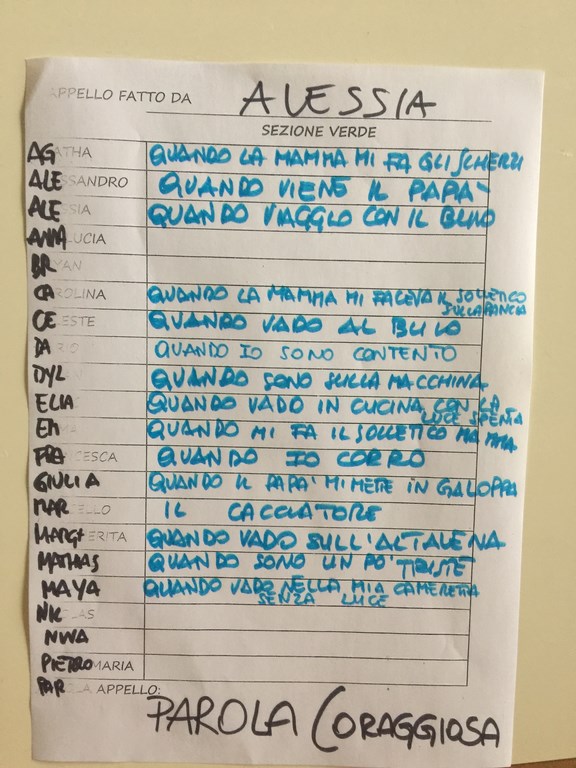 APPELLO FATTO DA ALESSIA
SEZIONE VERDE
AGATHA QUANDO LA MAMMA MI FA GLI SCHERZI
ALESSANDRO QUANDO VIENE IL PAPA'
ALESSIA QUANDO VIAGGIO CON IL BUIO
ANNALUCIA
BRYAN
CAROLINA QUANDO LA MAMMA MI FACEVA IL SOLLETICO
SULLA PANCIA
CELESTE QUANDO VADO AL BUIO
DARIO QUANDO IO SONO CONTENTO
DYL QUANDO SONO SULLA MACCHINA
ELIA QUANDO VADO IN CUCINA CON LA
LUCE SPENTA
EM QUANDO MI FA IL SOLLETICO MAMMA
FRANCESCA QUANDO IO CORRO
GIULIA QUANDO IL PAPA' MI METTE IN GALOPPA
MARCELLO IL CACCIATORE
MARGHERITA QUANDO VADO SULL'ALTALENA
MATHIAS QUANDO SONO UN PO' TRISTE
MAYA QUANDO VADO NELLA MIA CAMERETTA
SENZA LUCE
NIKOLAS
NWA
PIETROMARIA
PAROLA APPELLO:
PAROLA CORAGGIOSA